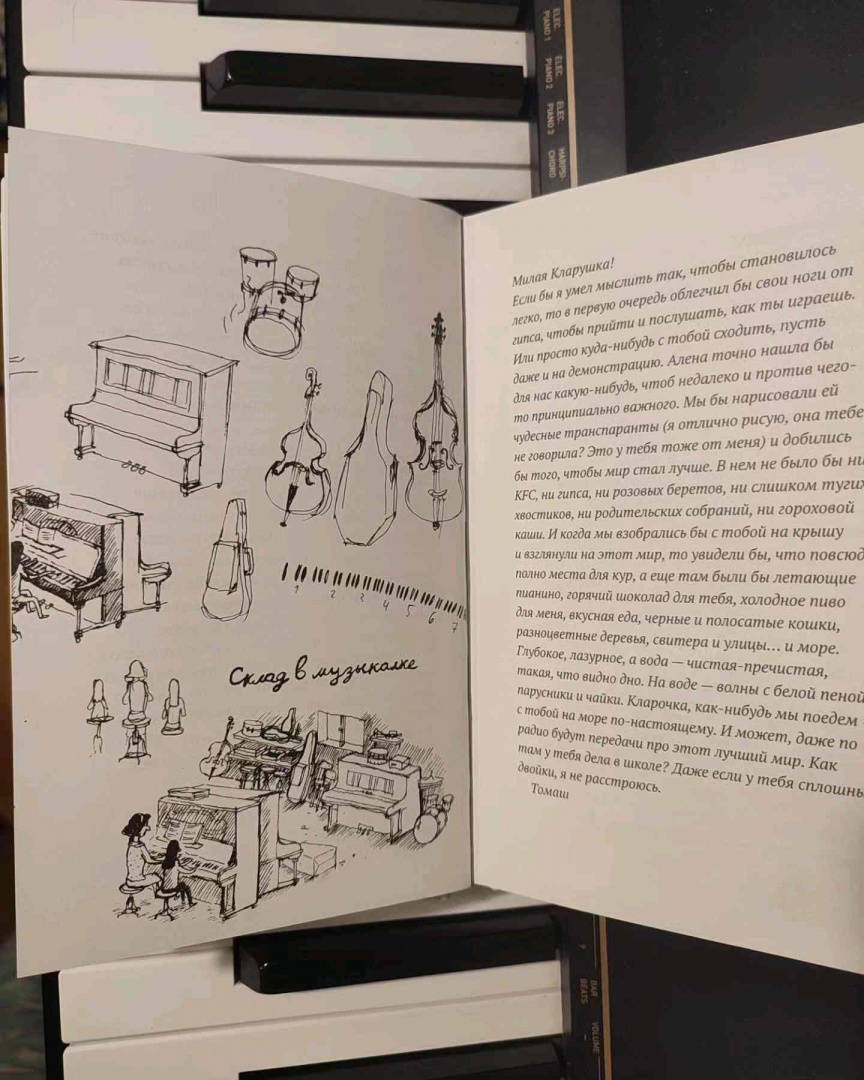 ELEC.
PIANO 1
ELEC.
PIANO 2
ELEC.
PIANO 3
HARPSI-
CHORD
1 2 3 4 5 6 7
Склад в музыкалке
Милая Кларушка!
Если бы я умел мыслить так, чтобы становилось
легко, то в первую очередь облегчил бы свои ноги от
гипса, чтобы прийти и послушать, как ты играешь.
Или просто куда-нибудь с тобой сходить, пусть
даже и на демонстрацию. Алена точно нашла бы
для нас какую-нибудь, чтоб недалеко и против чего-
то принципиально важного. Мы бы нарисовали ей
чудесные транспаранты (я отлично рисую, она тебе
не говорила? Это у тебя тоже от меня) и добились
бы того, чтобы мир стал лучше. В нем не было бы ни
KFC, ни гипса, ни розовых беретов, ни слишком тугих
хвостиков, ни родительских собраний, ни гороховой
каши. И когда мы взобрались бы с тобой на крышу
и взглянули на этот мир, то увидели бы, что повсюд
полно места для кур, а еще там были бы летающие
пианино, горячий шоколад для тебя, холодное пиво
для меня, вкусная еда, черные и полосатые кошки,
разноцветные деревья, свитера и улицы... и море.
Глубокое, лазурное, а вода — чистая-пречистая,
такая, что видно дно. На воде — волны с белой пеной
парусники и чайки. Кларочка, как-нибудь мы поедем
с тобой на море по-настоящему. И может, даже по
радио будут передачи про этот лучший мир. Как
там у тебя дела в школе? Даже если у тебя сплошны
двойки, я не расстроюсь.
Томаш
BAR
BEATS
VOLUME